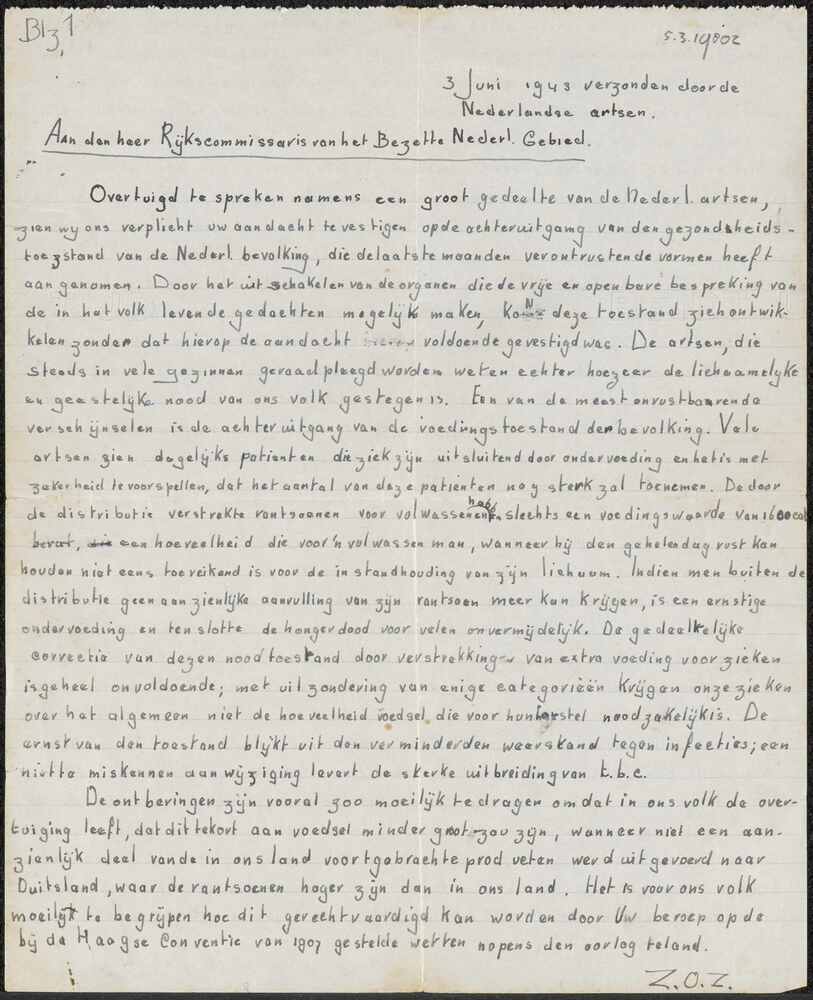 Blz. 1
5.3.1980z
3 Juni 1943 verzonden door de
Nederlandse artsen.
Aan den heer Rijkscommissaris van het Bezette Nederl. Gebied.
Overtuigd te spreken namens een groot gedeelte van de Nederl. artsen,
zien wy ons verplicht uw aandacht te vestigen op de achteruitgang van den gezondheids-
toezstand van de Nederl. bevolking, die de laatste maanden verontrustende vormen heeft
aangenomen. Door het uitschakelen van de organen die de vrije en openbare bespreking van
de in het volk levende gedachten mogelijk maken, kon deze toestand zich ontwik-
kelen zonder dat hierop de aandacht voldoende gevestigd was. De artsen, die
steeds in vele gezinnen geraadpleegd worden weten echter hoezeer de lichaamelyke
en geestelyke nood van ons volk gestegen is. Een van de meest onrustbarende
verschijnselen is de achteruitgang van de voedingstoestand der bevolking. Vele
artsen zien dagelijks patienten die ziek zijn uitsluitend door ondervoeding en het is met
zekerheid te voorspellen, dat het aantal van deze patienten nog sterk zal toenemen. De door
de distributie verstrekte rantsoenen voor volwassenen heb. slechts een voedingswaarde van 1600 cal
een hoeveelheid die voor'n volwassen man, wanneer hij den gehelen dag rust kan
houden niet eens toereikend is voor de instandhouding van zijn lichaam. Indien men buiten de
distributie geen aanzienlijke aanvulling van zijn rantsoen meer kan krijgen, is een ernstige
ondervoeding en tenslotte de hongerdood voor velen onvermijdelijk. De gedeeltelijke
correctie van dezen noodtoestand door verstrekkingen van extra voeding voor zieken
is geheel onvoldoende; met uitzondering van enige categorieën krijgen onze zieken
over het algemeen niet de hoeveelheid voedsel die voor hun herstel noodzakelijk is. De
ernst van den toestand blijkt uit den verminderden weerstand tegen infecties; een
niet te miskennen aanwijziging levert de sterke uitbreiding van t.b.c.
De ontberingen zijn vooral zoo moeilijk te dragen omdat in ons volk de over-
tuiging leeft, dat dit tekort aan voedsel minder groot zou zijn, wanneer niet een aan-
zienlijk deel van de in ons land voortgebrachte producten werd uitgevoerd naar
Duitsland, waar de rantsoenen hoger zijn dan in ons land. Het is voor ons volk
moeilijk te begrijpen hoe dit gerechtvaardigd kan worden door Uw beroep op de
bij de Haagse Conventie van 1907 gestelde wetten nopens den oorlog te land.
Z.O.Z.